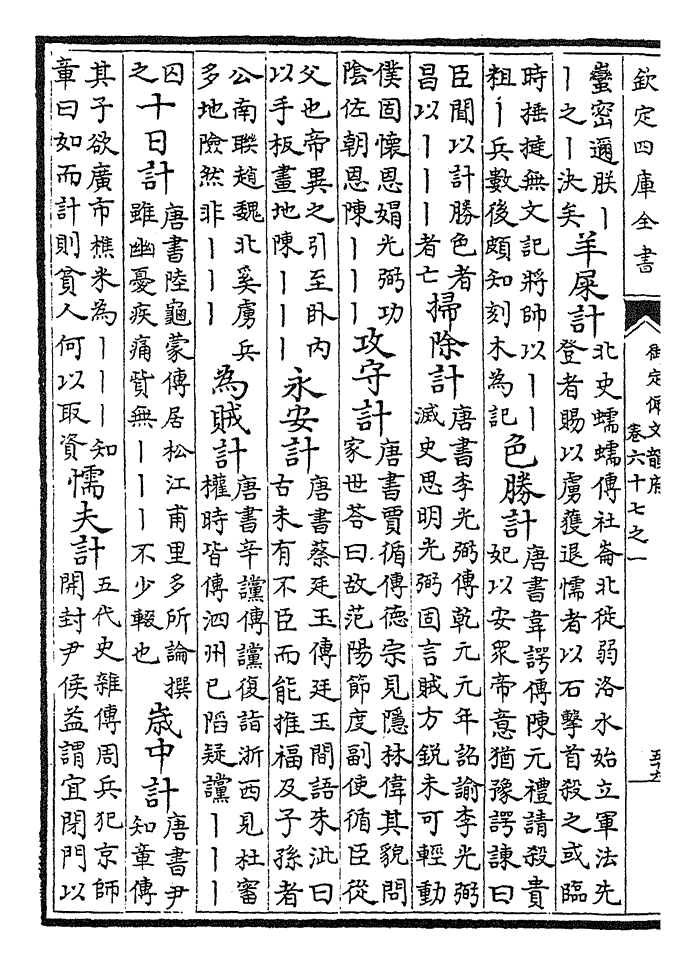 欽定四庫全書
御定佩文韻府
卷六十七之一
五十六
蠻密邇朕丨
丨之丨決矣
羊屎計
北史蠕蠕傳社崙北徙弱洛水始立軍法先
登者賜以虜獲退懦者以石擊首殺之或臨
時捶撻無文記將帥以丨丨
粗丨兵數後頗知刻木為記
色勝計
唐書韋諤傳陳元禮請殺貴
妃以安眾帝意猶豫諤諫曰
臣聞以計勝色者
昌以丨丨丨者亡
掃除計
唐書李光弼傳乾元元年詔諭李光弼
滅史思明光弼固言賊方銳未可輕動
僕固懷恩媢光弼功
陰佐朝恩陳丨丨丨
攻守計
唐書賈循傳德宗見隱林偉其貌問
家世荅曰故范陽節度副使循臣從
父也帝異之引至卧内
以手板畫地陳丨丨丨
永安計
唐書蔡廷玉傳廷玉間語朱泚曰
古未有不臣而能推福及子孫者
公南聯趙魏北奚虜兵
多地險然非丨丨丨
為賊計
唐書辛讜傳讜復詣浙西見杜審
權時皆傳泗州已陷疑讜丨丨丨
囚
之
十日計
唐書陸龜蒙傳居松江甫里多所論撰
雖幽憂疾痛貲無丨丨丨不少輟也
歲中計
唐書尹
知章傳
其子欲廣市樵米為丨丨丨知
章曰如而計則貧人何以取資
懦夫計
五代史雜傳周兵犯京師
開封尹侯益謂宜閉門以